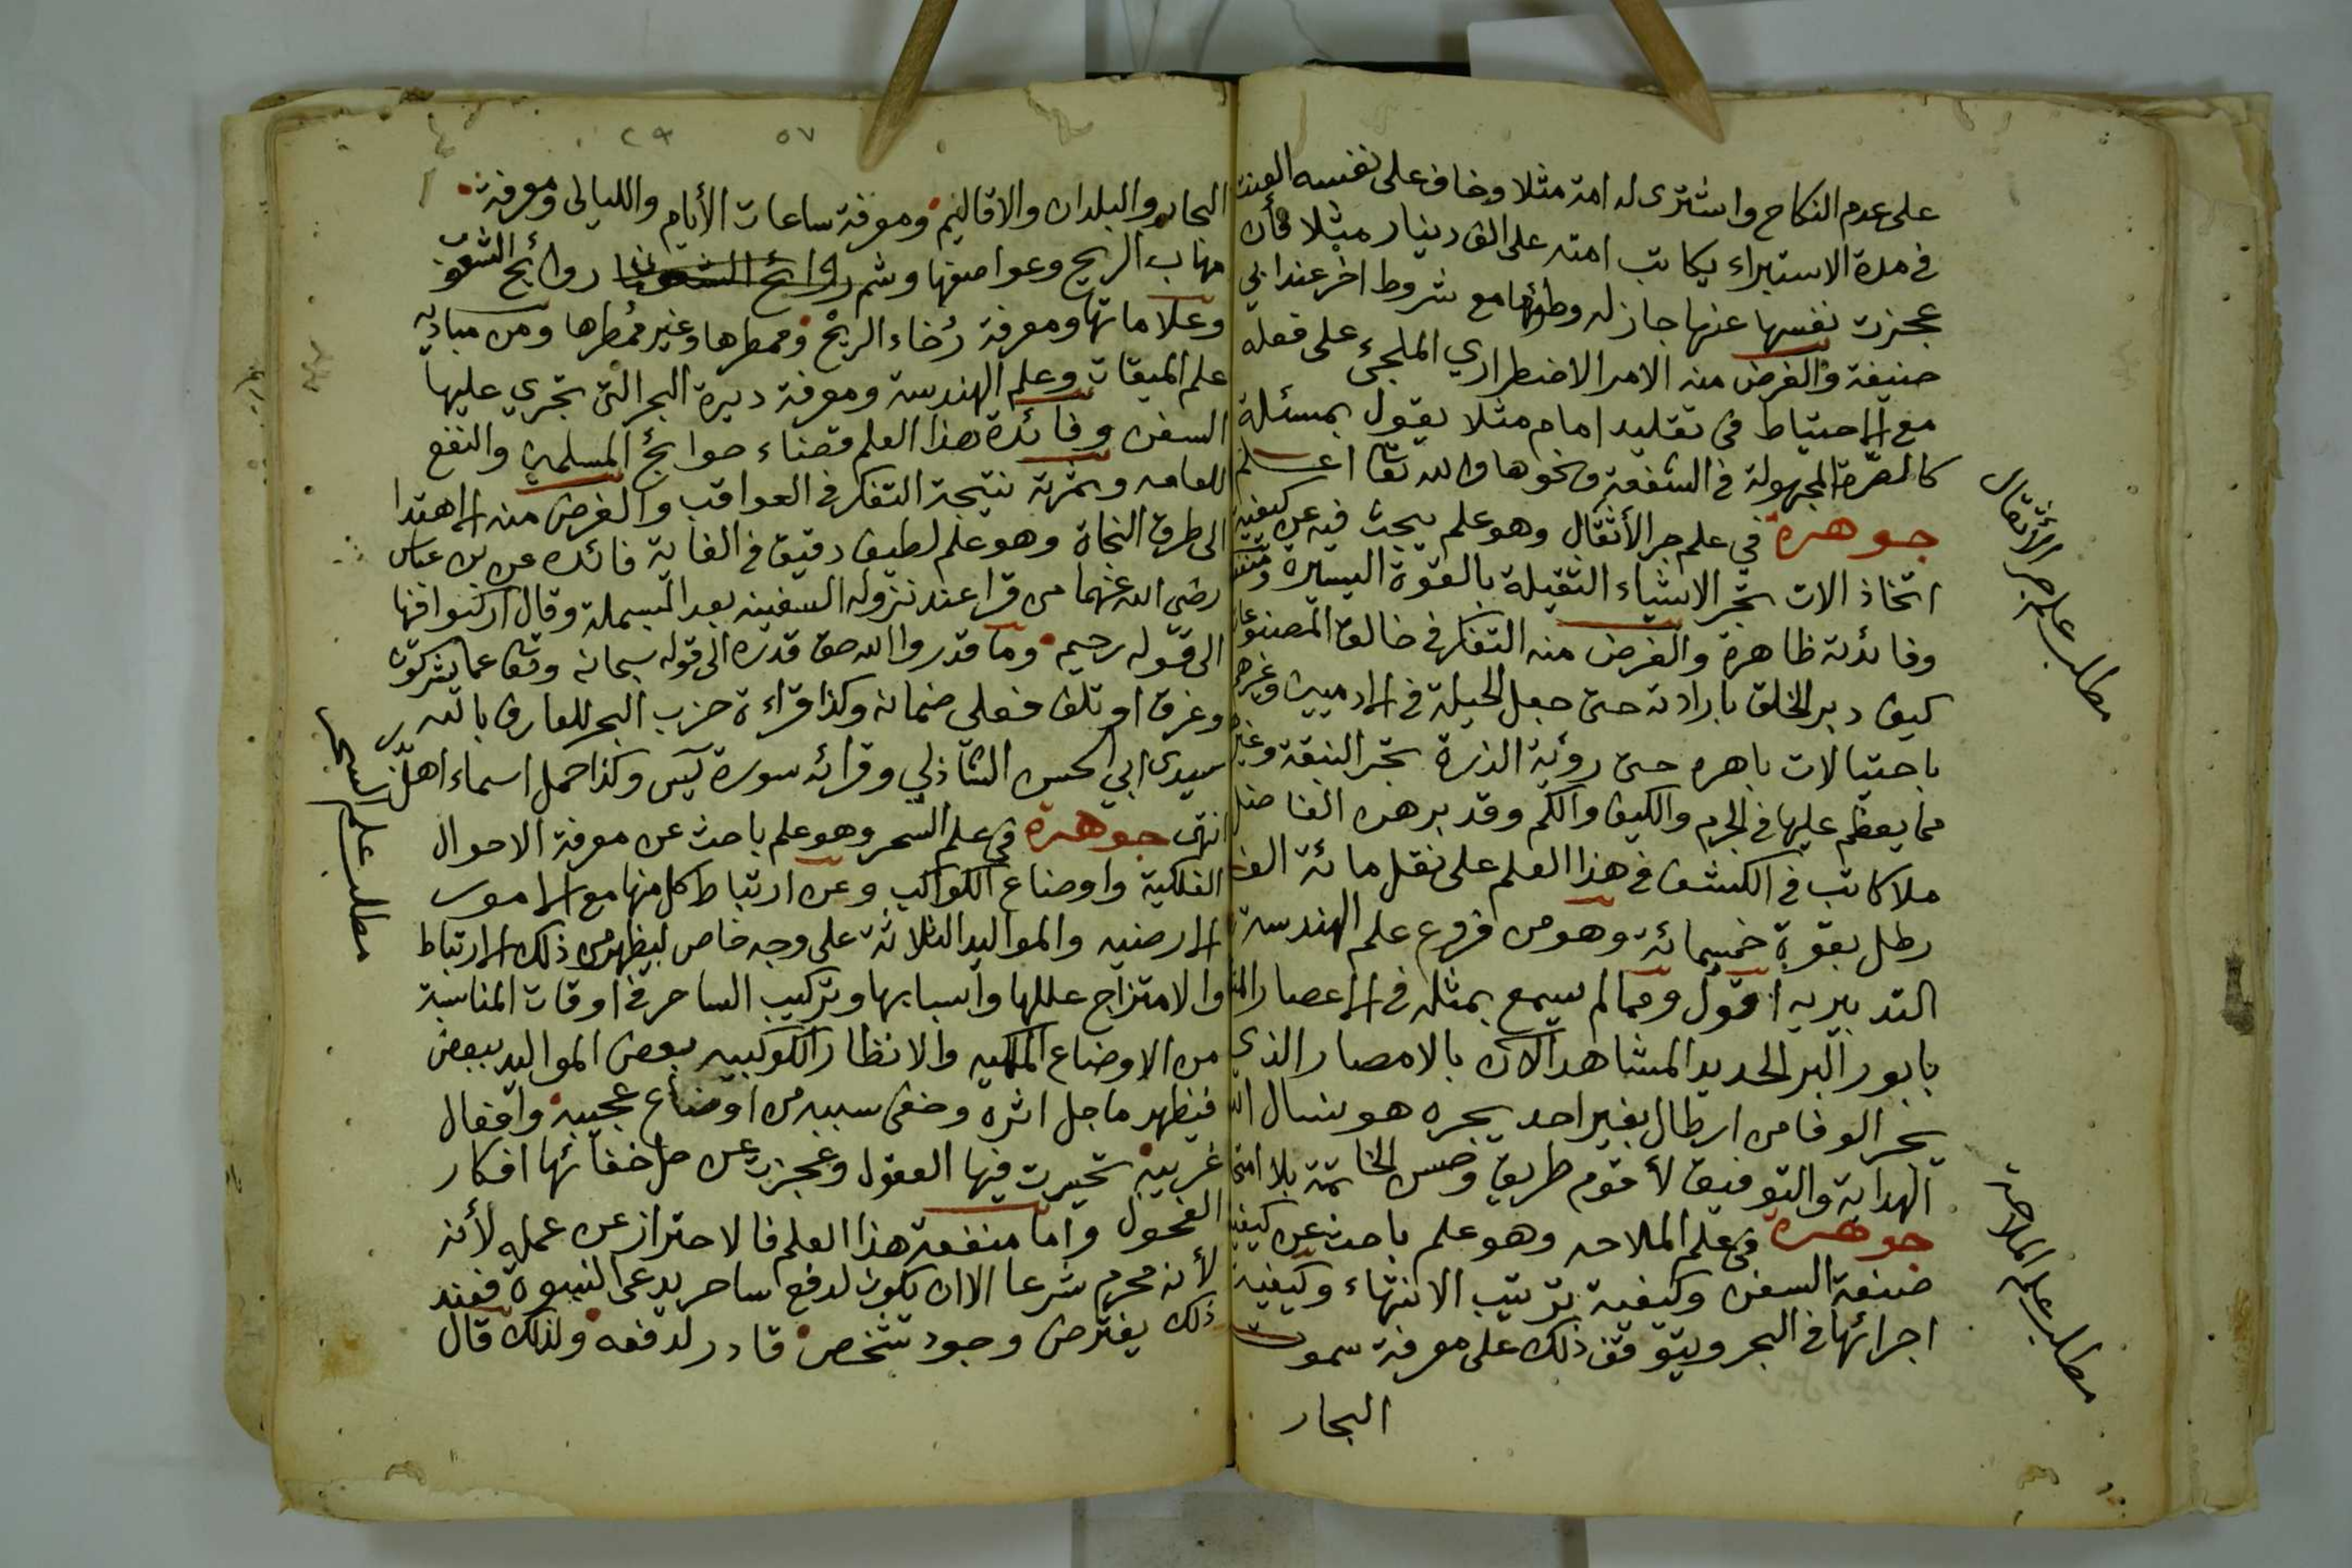 على عدم النكاح واشترى له امة مثلا وخاف على نفسه العنت
في مدة الاستبراء يكاتب امته على الف دينار مثلا فأن
عجزت نفسها عنها جاز له وطؤها مع شروط اخر عند ابي
حنيفة والغرض منه الامر الاضطراري الملجئ على فعله
مع الاحتياط في تقليد امام مثلا يقول بمسئلة
كالصرة المجهولة في الشفعة ونحوها والله تعا اعلم
جوهرة في علم جر الأثقال وهو علم يبحث فيه عن كيفية
اتخاذ الات تجر الاشياء الثقيلة بالقوة اليسيرة
وفائدته ظاهرة والغرض منه التفكر في خالق المصنوعات
كيف دبر الخلق بارادته حتى جعل الحيلة في الادميين وغيرهم
باحتيالات باهره حتى رؤية الذرة تجر النبقة وغير
مما يعظم عليها في الجرم والكيف والكم وقد برهن الفاضل
ملا كاتب في الكشف في هذا العلم على نقل مائة الف
رطل بقوة خمسمائة وهو من فروع علم الهندسة
التدبيريه اقول ومما لم يسمع بمثله في الاعصار
بابور البر الحديد المشاهد الان بالامصار الذي
يجر الوفا من ارطال بغير احد يجره هو نسال الله
الهداية والتوفيق لأقوم طريق وحسن الخاتمة بلا
جوهرة في علم الملاحه وهو علم باحث عن كيفية
صنعة السفن وكيفية ترتيب الانتهاء وكيفية
اجرائها في البحر ويتوقف ذلك على معرفة سموت
البحار
مطلب علم جر الأثقال
مطلب علم الملاحة
٥٧
٢٩
البحار والبلدان والاقاليم ومعرفة ساعات الأيام والليالى ومعرفة
مهاب الريح وعواصفها وشم روائح الشعوب
وعلاماتها ومعرفة رُخاء الريح وممطرها وغير مُمطرها ومن مباديه
علم الميقات وعلم الهندسة ومعرفة ديرة البحر التى تجري عليها
السفن وفائدة هذا العلم قضاء حوائج المسلمين والنفع
للعامه وثمرته نتيجة التفكر في العواقب والغرض منه الاهتدا
الى طرق النجاة وهو علم لطيف دقيق في الغاية فائده عن بن عباس
رضي الله عنهما من قرا عند نزوله السفينه بعد البسملة وقال اركبوا فيها
الى قوله رحيم وما قدروا الله حق قدره الى قوله سبحانه وتعا عما يشركون
وغرق او تلف فعلى ضمانه وكذا قراءة حزب البحر للعارف بالله
سيدى ابي الحسن الشاذلي وقرائه سورة يس وكذا حمل اسماء اهل
انتهى جوهرة في علم السحر وهو علم باحث عن معرفة الاحوال
الفلكية واوضاع الكواكب وعن ارتباط كل منها مع الامور
الارضيه والمواليد الثلاثة على وجه خاص ليظهر من ذلك الارتباط
والامتزاج عللها واسبابها وتركيب الساحر في اوقات المناسبة
من الاوضاع الفلكيه والانظار الكوكبيه بعض المواليد ببعض
فيظهر ما جل اثره وخفى سببه من اوضاع عجيبه وافعال
غريبه تحيرت فيها العقول وعجزت عن حل خفائها افكار
الفحول واما منفعة هذا العلم فالاحتراز عن عمله لأنه
لأنه محرم شرعا الا ان يكون لدفع ساحر يدعى النبوة فعند
ذلك يفترض وجود شخص قادر لدفعه ولذلك قال
مطلب علم السحر